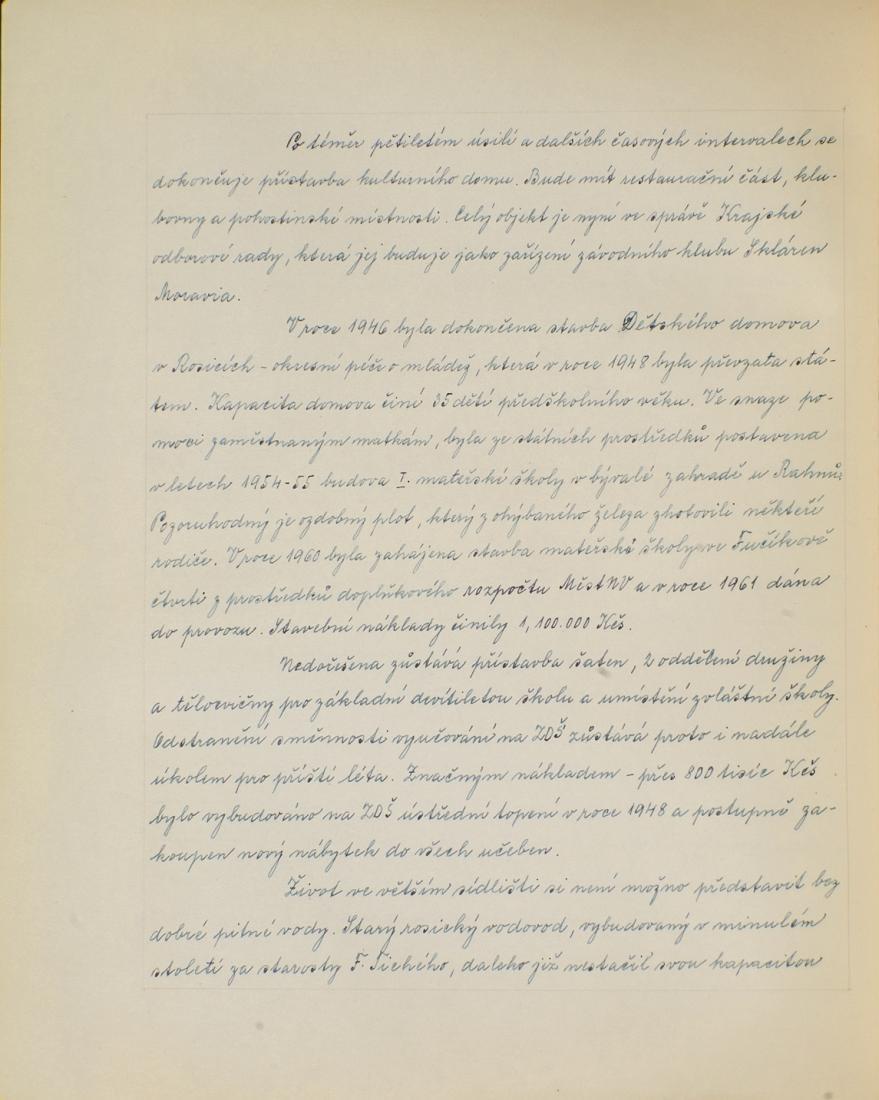 Po téměř pětiletém úsilí a dalších časových intervalech se
dokončuje přístavba kulturního domu. Bude mít restaurační část, klu-
bovny a pohostinské místnosti. Celý objekt je nyní ve správě Krajské
odborové rady, která jej buduje jako zařízení závodního klubu Skláren
Moravia.
V roce 1946 byla dokončena stavba Dětského domova
v Rosicích - okresní péče o mládež, která v roce 1948 byla převzata stá-
tem. Kapacita domova činí 35 dětí předškolního věku. Ve snaze po-
moci zaměstnaným matkám, byla ze státních prostředků postavena
v letech 1954-55 budova I. mateřské školy v bývalé zahradě u Rahnů.
Pozoruhodný je ozdobný plot, který z ohýbaného železa zhotovili někteří
rodiče. V roce 1960 byla zahájena stavba mateřské školy ve Fučíkově
čtvrti z prostředků doplňkového rozpočtu MěstNV a v roce 1961 dána
do provozu. Stavební náklady činily 1,100.000 Kčs.
Nedořešena zůstává přístavba šaten, 2 oddělení družiny
a tělocvičny pro základní devítiletou školu a umístění zvláštní školy.
Odstranění směnnosti vyučování na ZDŠ zůstává proto i nadále
úkolem pro příští léta. Značným nákladem - přes 800 tisíc Kčs
bylo vybudováno na ZDŠ ústřední topení v roce 1948 a postupně za-
koupen nový nábytek do všech učeben.
Život ve větším sídlišti si není možno představit bez
dobré pitné vody. Starý rosický vodovod, vybudovaný v minulém
století za starosty F. Tichého, daleko již nestačil svou kapacitou